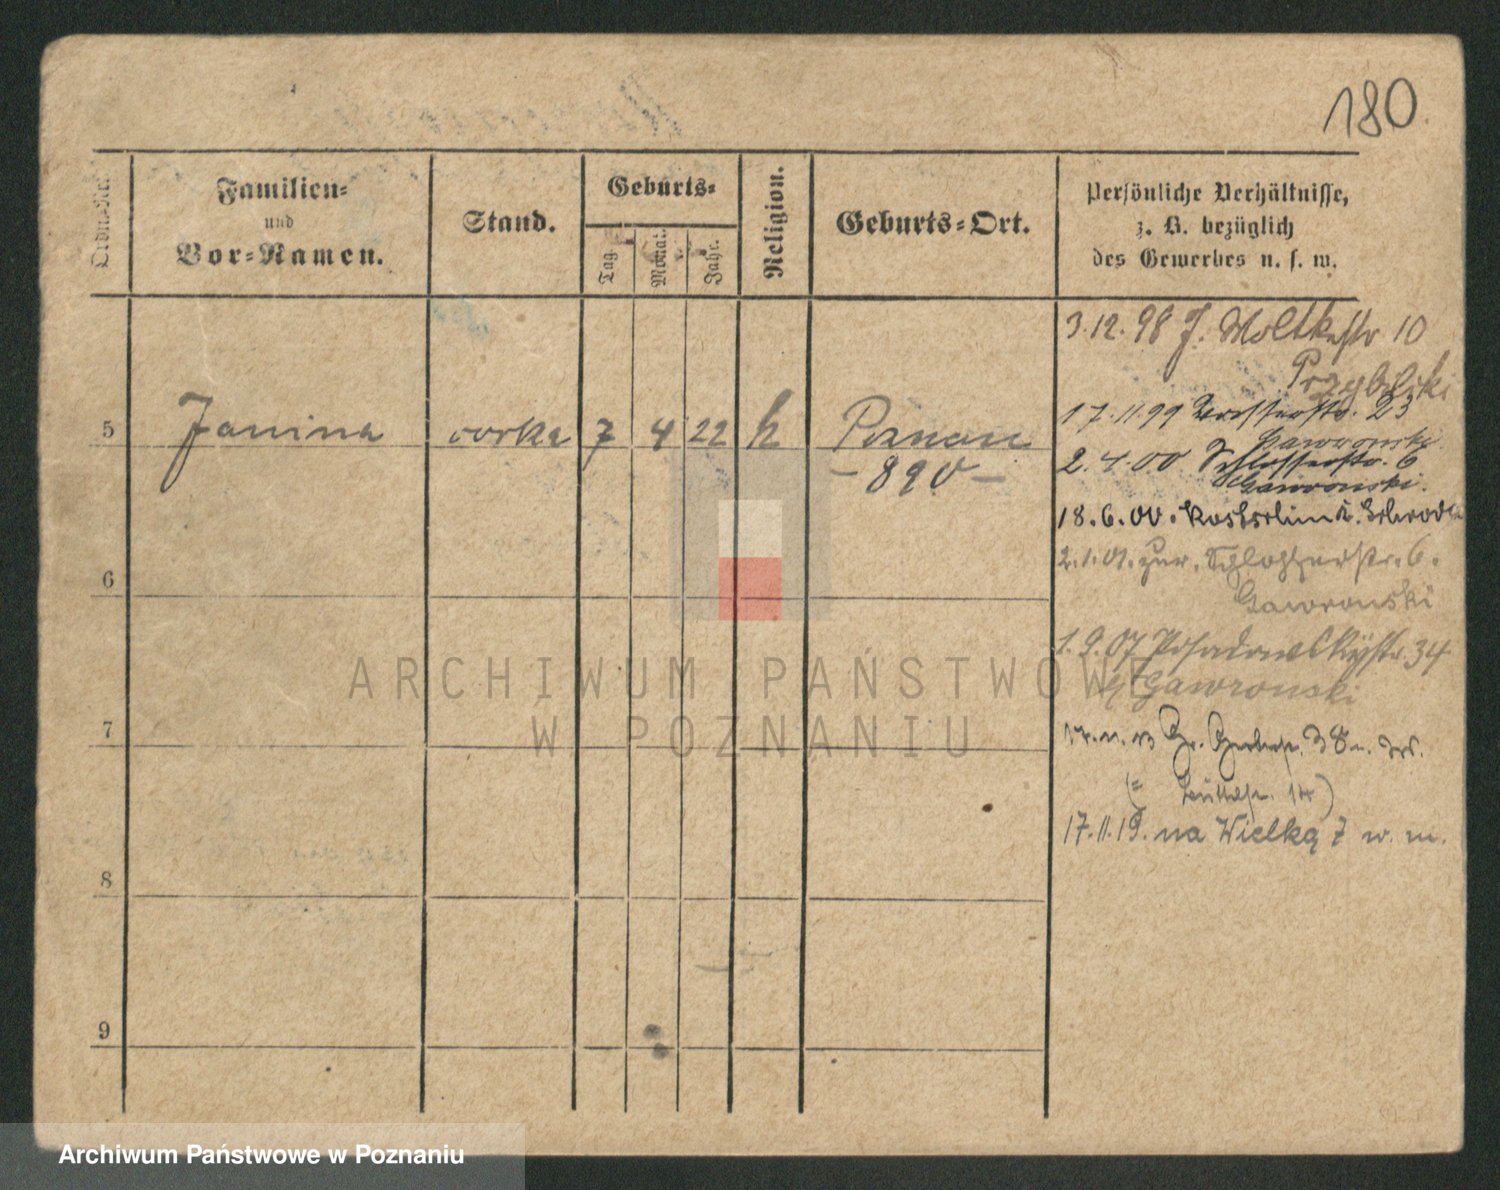 180
Ordn.-Nr.
Familien-
und
Vor-Namen.
Stand.
Geburts-
Tag.
Monat.
Jahr.
Religion.
Geburts-Ort.
Persönliche Verhältnisse,
z. B. bezüglich
des Gewerbes u. s. w.
3.12.98 J. Moltkestr 10
Przybylski
5 Janina corka 7 4 22 k Poznan
- 890 -
17.11.99 23
Gawronski
2.4.00 Schlosserstr. 6
Gawronski.
18.6.00. Kostschin K. Schroda
2.1.01. zur. Schlosserstr. 6.
Gawronski
6
1.9.07 Posadowskystr. 34
Gawronski
7
Gr. Gerberstr. 38
17.11.19. na Wielką 7 w. m.
8
9
ARCHIWUM PAŃSTWOWE
W POZNANIU
Archiwum Państwowe w Poznaniu